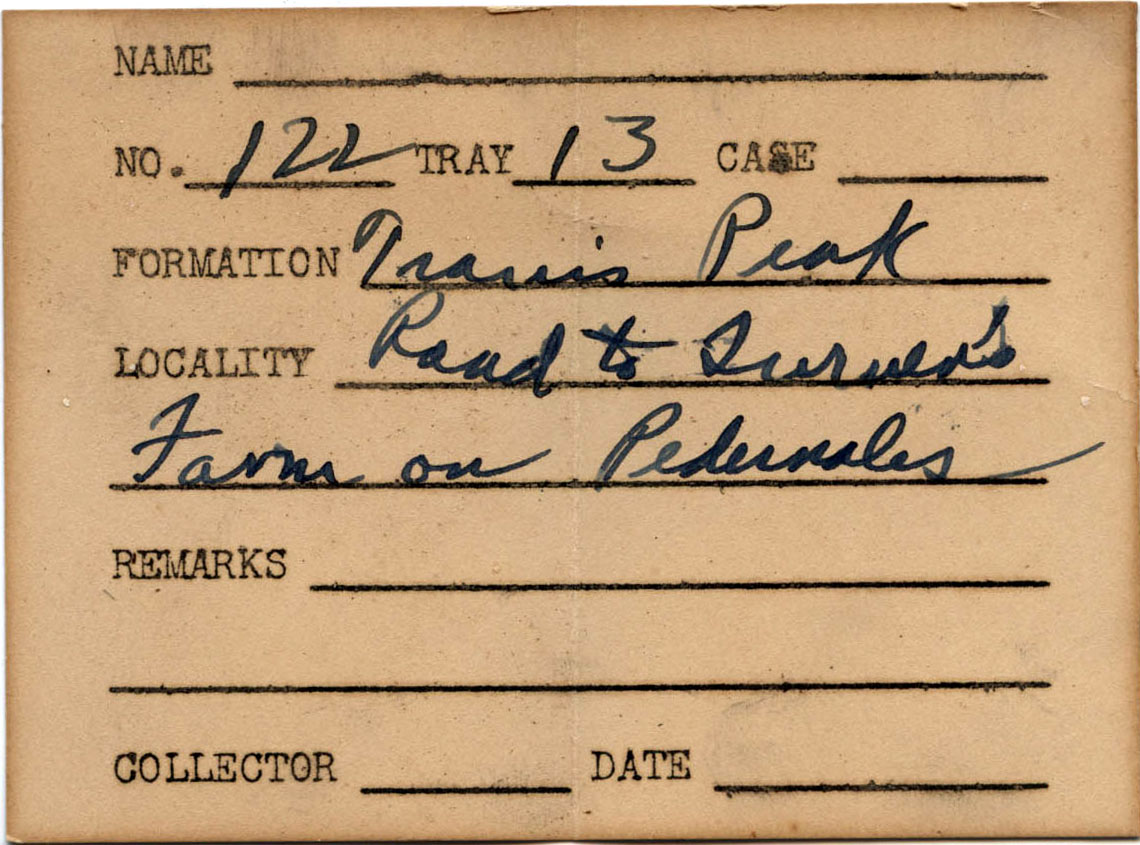 NAME
NO. 122 TRAY 13 CASE
FORMATION Travis Peak
LOCALITY Road to Turner's
Farm on Pedernales
REMARKS
COLLECTOR DATE